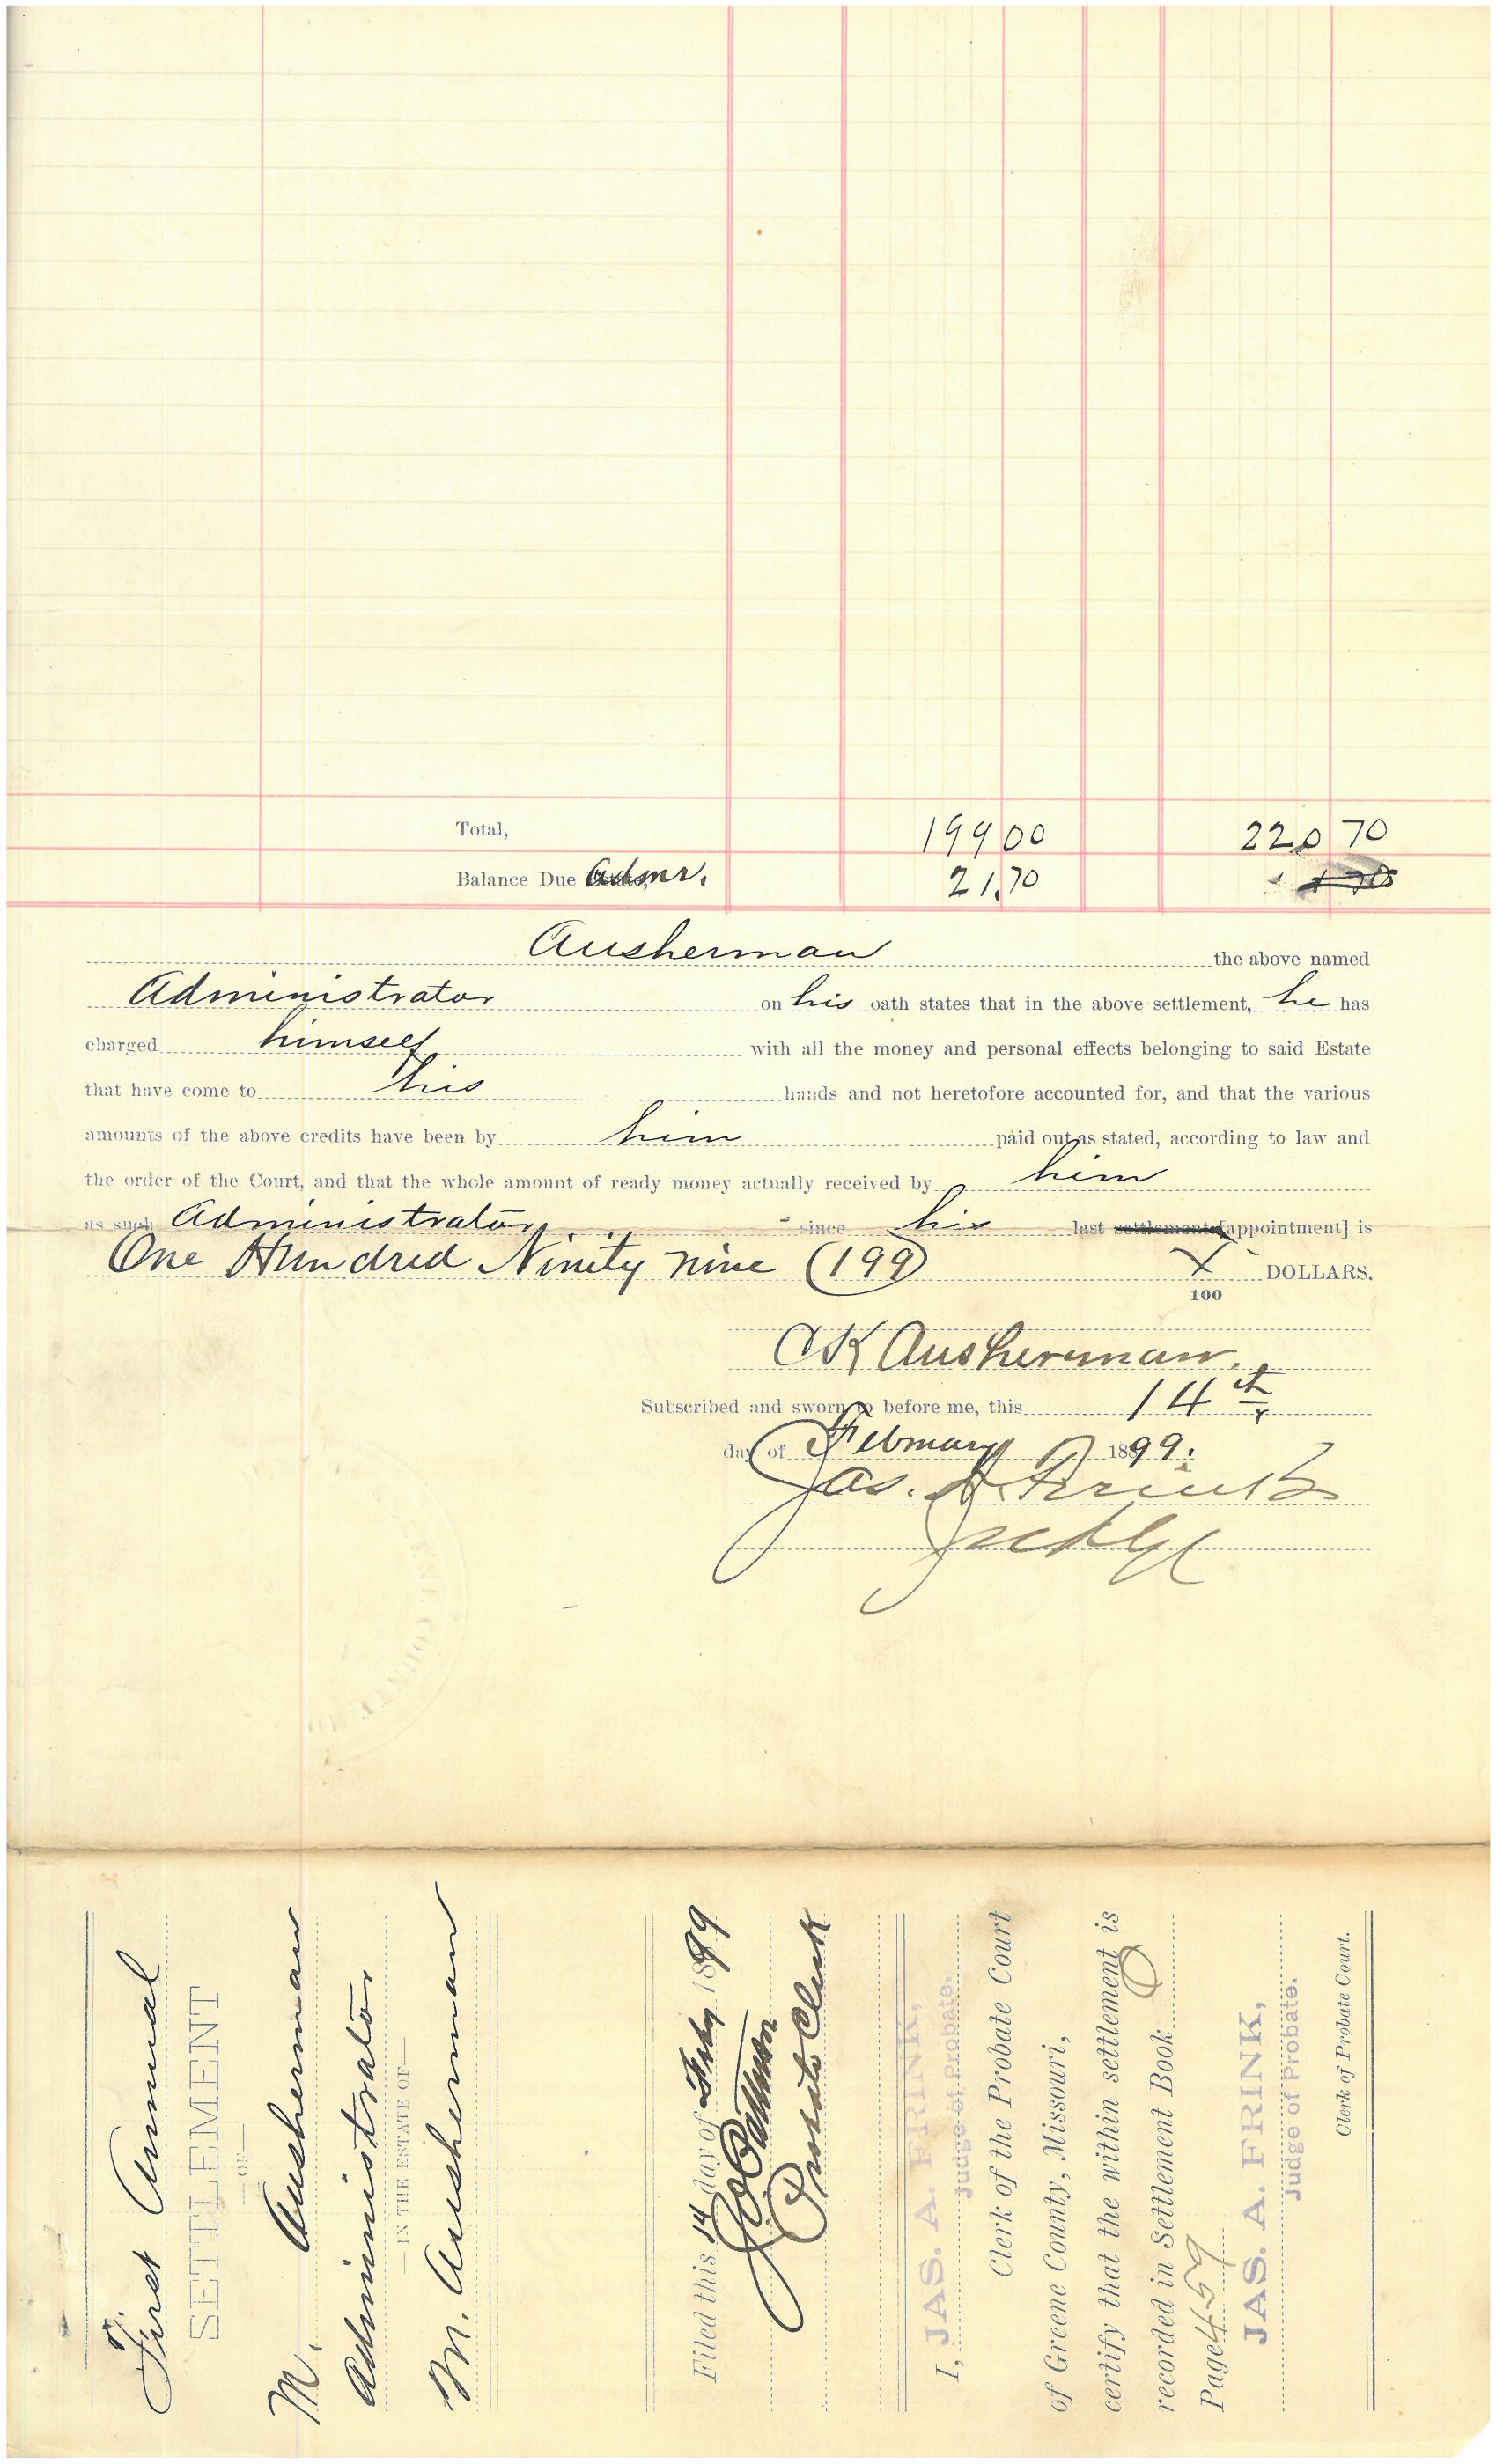 Total, 199 00 220 70
Balance Due Admr. 21.70
Ausherman the above named
Administrator on his oath states that in the above settlement, he has
charged himself with all the money and personal effects belonging to said Estate
that have come to his hands and not heretofore accounted for, and that the various
amounts of the above credits have been by him paid out as stated, according to law and
the order of the Court, and that the whole amount of ready money actually received by him
as such Administrator since his last settlement [appointment] is
One Hundred Ninity nine (199) X DOLLARS.
100
CK Ausherman.
Subscribed and sworn to before me, this 14th
day of February 1899.
Jas. A Frink
Judge
First Annual
SETTLEMENT
—OF—
M. Ausherman
Administrator
—IN THE ESTATE OF—
M. Ausherman
Filed this 14 day of Feby 1899
Probate Clerk
I, JAS. A. FRINK,
Judge of Probate.
Clerk of the Probate Court
of Greene County, Missouri,
certify that the within settlement is
recorded in Settlement Book
Page 459
JAS. A. FRINK,
Judge of Probate.
Clerk of Probate Court.